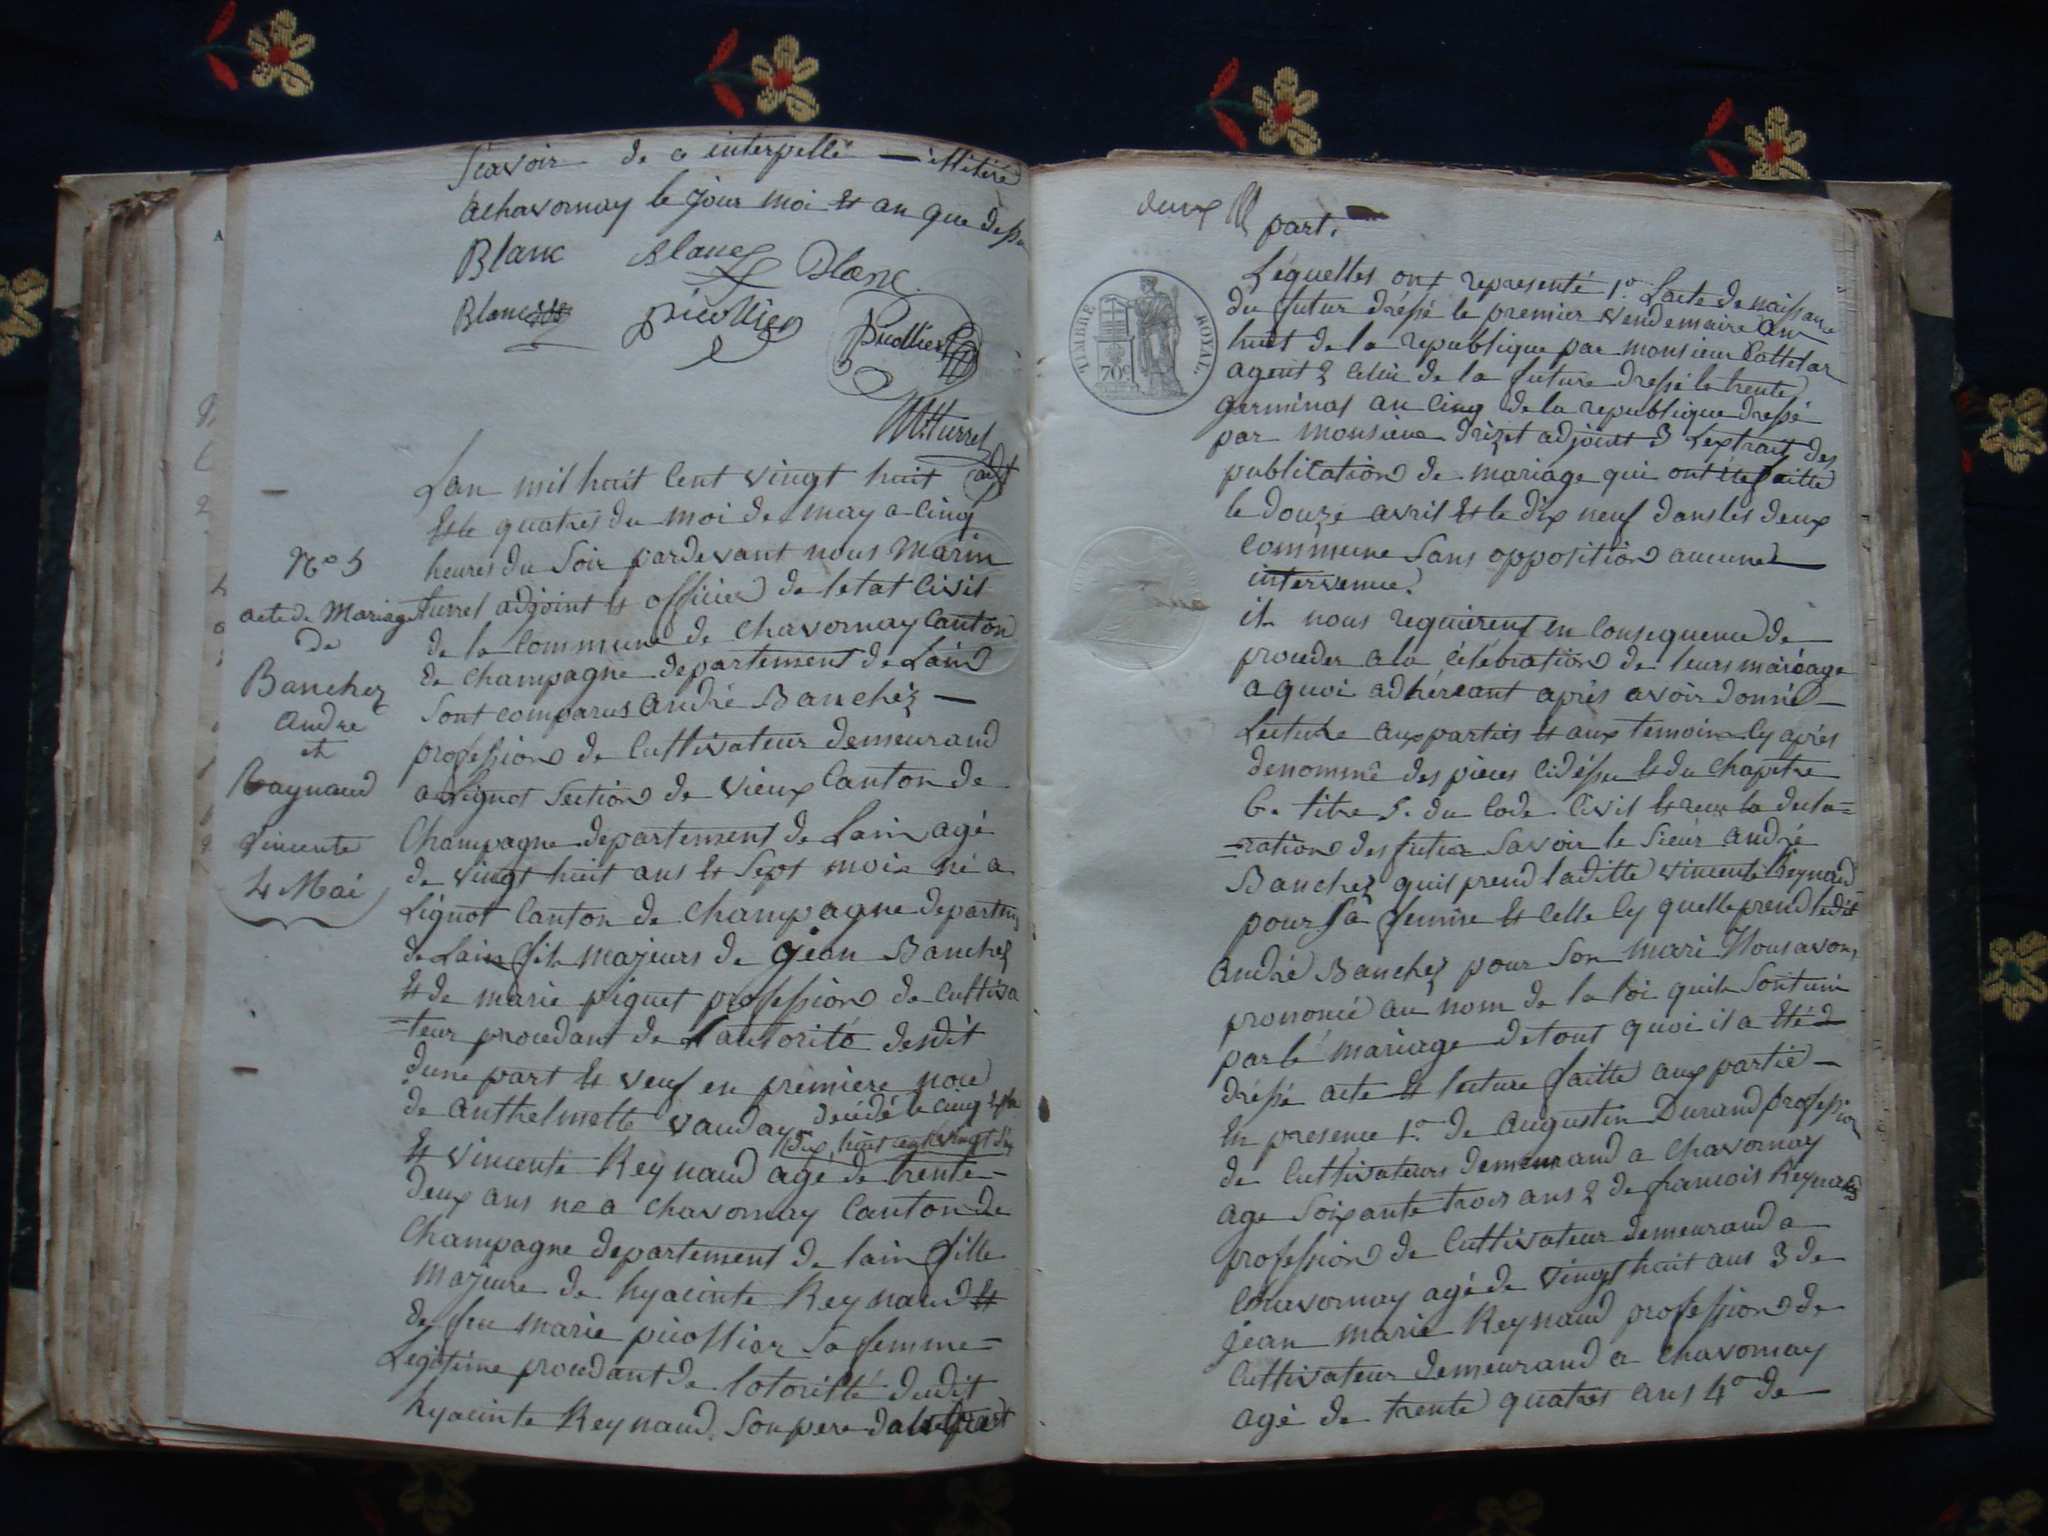 Scavoir de a interpellé —
a chavornay le jour moi et an que dessu
Blanc Blanc Blanc
Blanc picollier Picollier
M. turrel
adjt
Lan mil huit Cent vingt huit
et le quatres du moi de may a Cinq
heures du Soir pardevant nous Marin
turrel adjoint et officier de letat Civil
de la Commune de Chavornay Canton
de Champagne departement de Lain
Sont comparus andré Banchez —
profession de Cultivateur demeurand
a Lignot Section de vieux Canton de
Champagne departement de Lain agé
de vingt huit ans et Sept mois né a
Lignot Canton de Champagne departem
de Lain fils majeurs de jean Banchez
et de marie piguet profession de Cultiva
=teur procedant de Lautorité desdit
dune part et veuf en premiere noce
de anthelmette vauday décédé le cinq
dix huit cent vingt six
et vincente Reynaud age de trente-
deux ans ne a Chavornay Canton de
Champagne departement de lain fille
majeure de hyacinte Reynaud et
de feu marie picollier Sa femme=
Legitime procedant de lotoritté dudit
hyacinte Reynaud Son pere dautre part
No 5
acte de Mariage
de
Banchez
andre
et
Raynaud
vincente
4 Mai
deux
part.
TIMBRE ROYAL.
70c
Léquelles ont representé 1o. Lacte de naissance
du futur dréssé le premier vendemaire an
huit de la republique par monsieur
agent 2 Celui de la future dressé le trente
germinal an Cinq de la republique dressé
par monsieur drizet adjoint 3 Lextrait des
publication de mariage qui ont été faitte
le douze avril et le dix neuf dans les deux
commune Sans opposition aucune
intervenue.
il nous requierent en Consequence de
proceder a la célébration de leurs mariage
a quoi adhéreant aprés avoir donné —
Lecture aux parties et aux temoins Cy aprés
denommé des pieces Cidéssu et du Chapitre
6. titre 5. du Code Civil et recu la decla=
=ration des futur Savoir le Sieur andré
Banchez quil prend laditte vincente Reynaud
pour Sa femme et Celle Cy quelle prend ledit
andré Banchez pour Son mari Nous avons
prononcé au nom de la loi quils Sont uni
par le mariage de tout quoi il a été
dréssé acte et lecture faitte aux partie —
En presence 1o. de augustin Durand profession
de Cultivateurs demeurand a Chavornay
age Soixante trois ans 2 de francois Reynaud
profession de Cultivateur demeurand a
Chavornay agé de vingt huit ans 3 de
jean marie Reynaud profession de
Cultivateur demeurand a Chavornay
agé de trente quatres ans 4o de